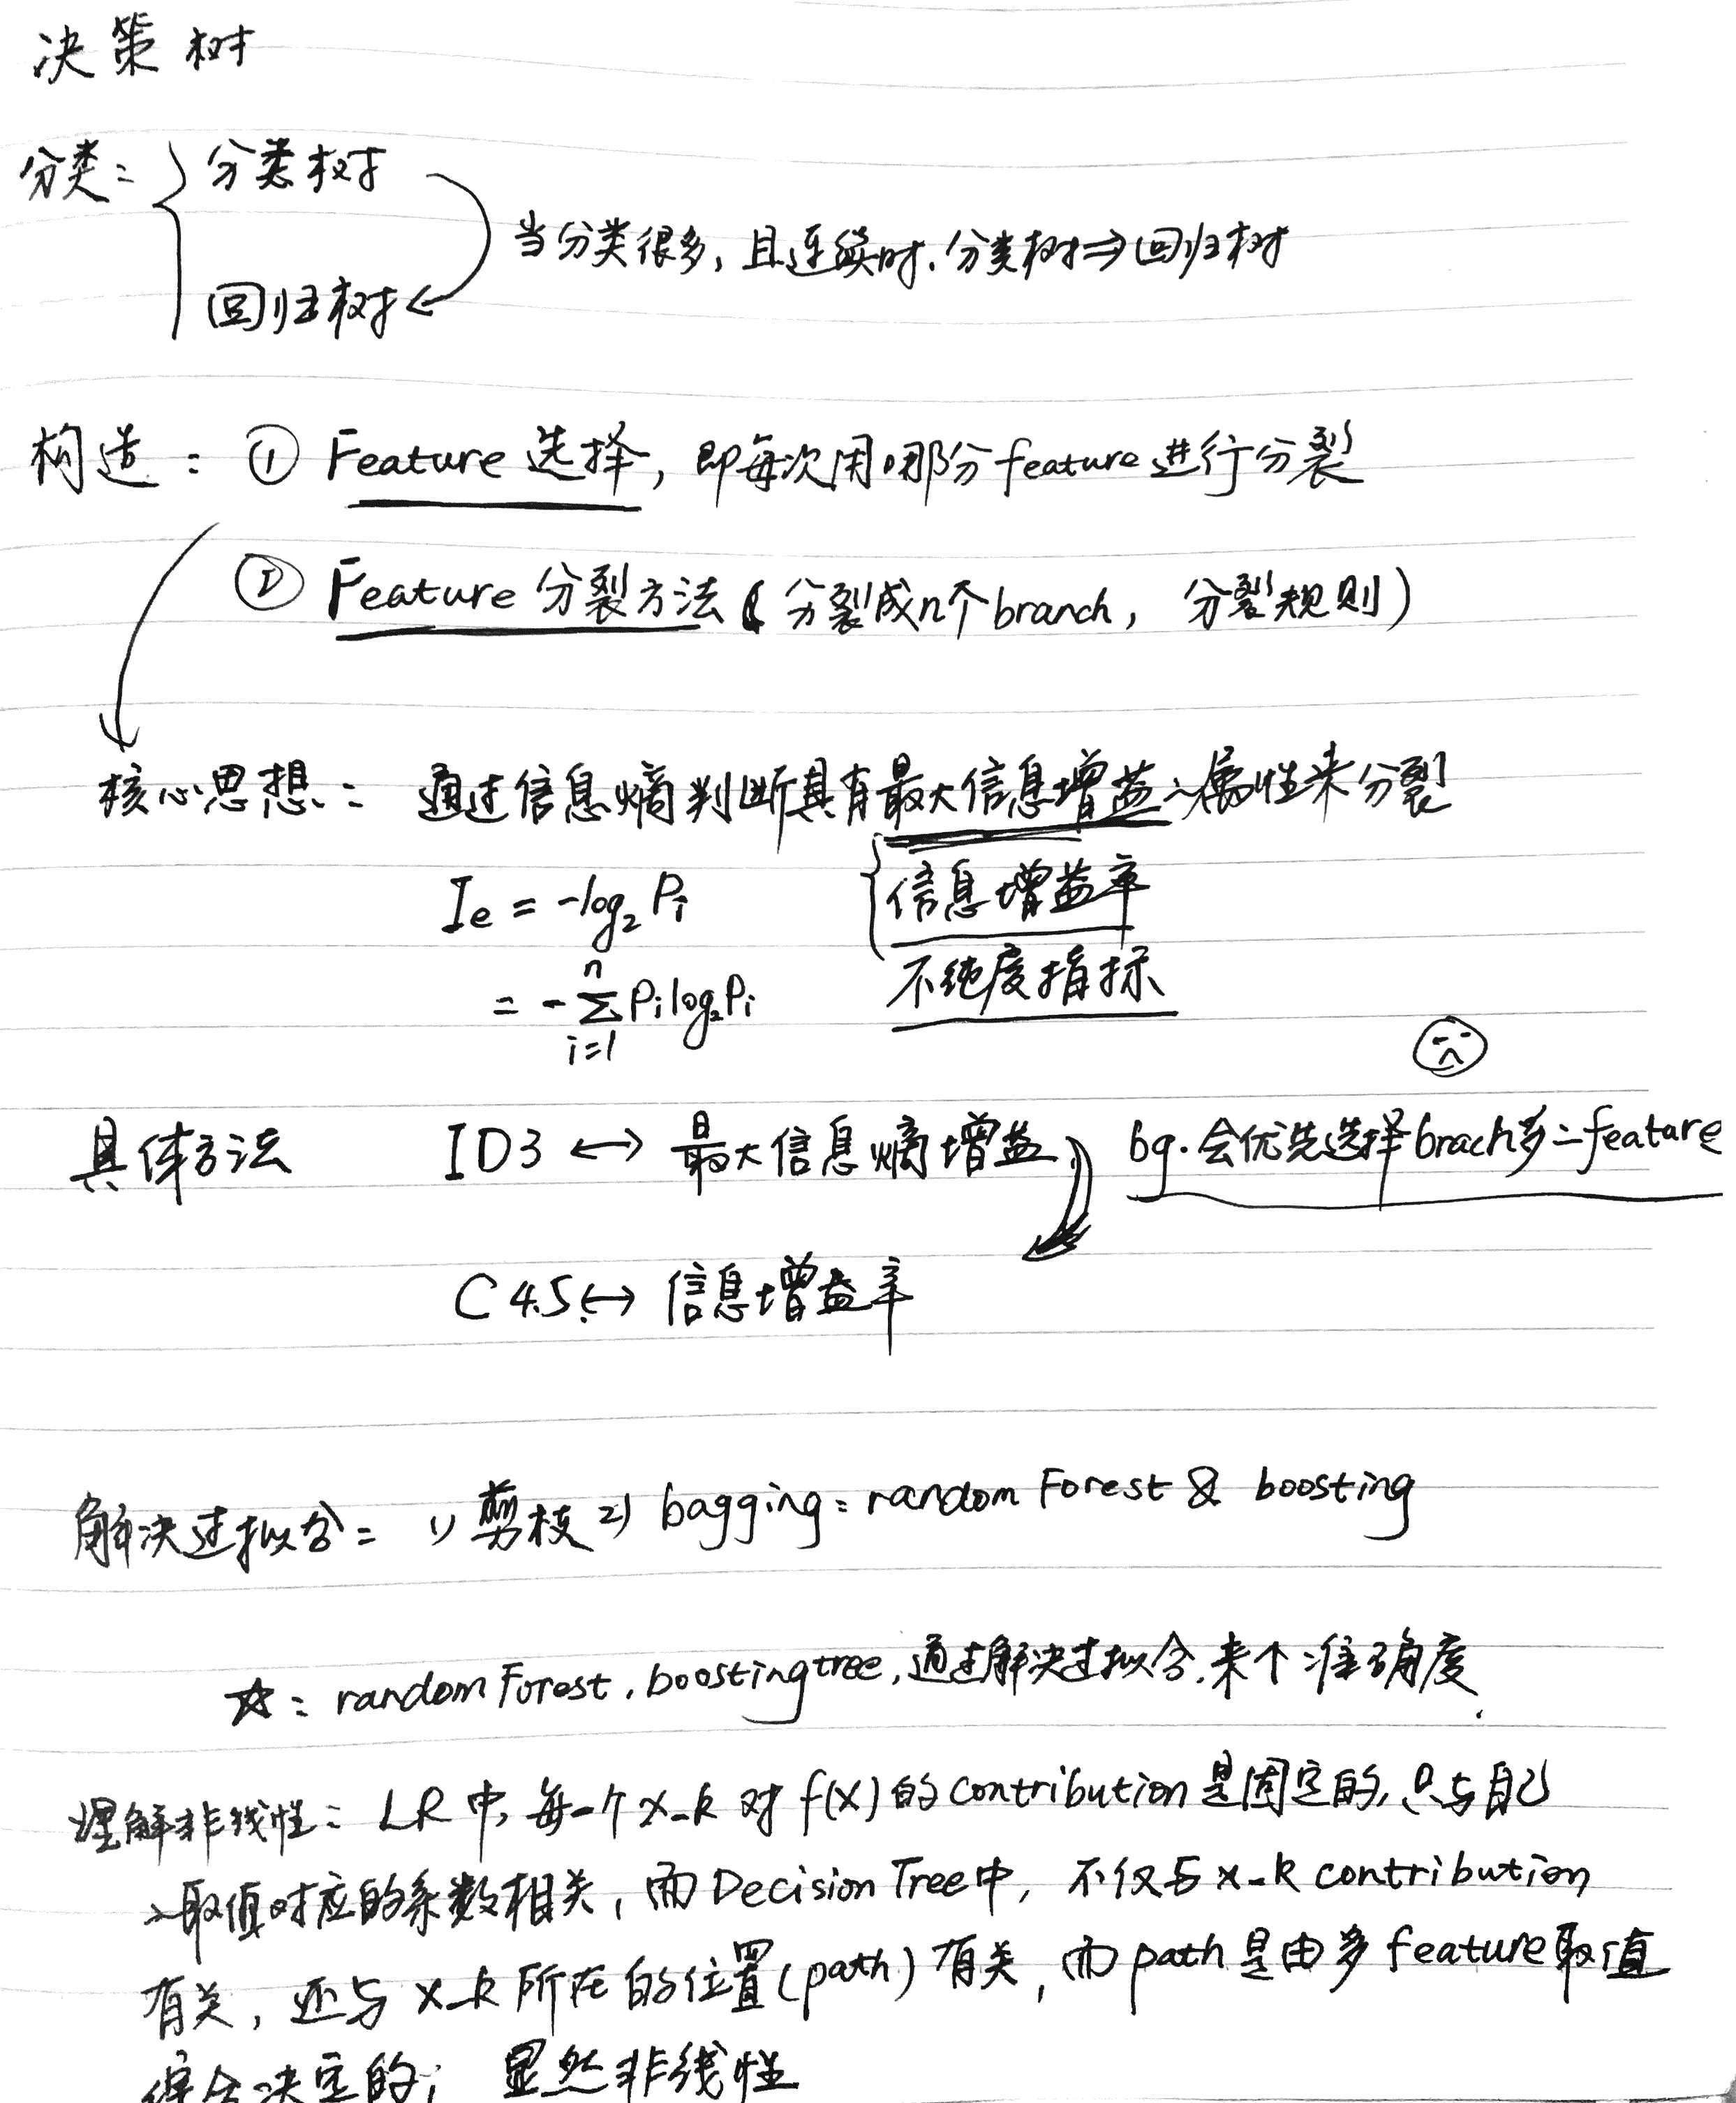 决策树
分类: 分类树
当分类很多, 且连续时. 分类树⇒回归树
回归树
构造: ① Feature 选择, 即每次用哪分feature进行分裂
② Feature 分裂方法 ( 分裂成n个branch, 分裂规则)
核心思想: 通过信息熵判断具有最大信息增益~属性来分裂
Ie = -log₂ Pi
信息增益率
= -∑ⁿᵢ₌₁ Pi log₂Pi
不纯度指标
具体方法 ID3 ↔ 最大信息熵增益 bg. 会优先选择brach多=feature
C4.5 ↔ 信息增益率
解决过拟合: 1) 剪枝 2) bagging: random Forest & boosting
☆: random Forest, boosting tree, 通过解决过拟合, 来个准确度.
理解非线性: LR中, 每一个x_k 对 f(x) 的 contribution 是固定的, 只与自己
取值对应的系数相关, 而 Decision Tree中, 不仅与 x_k contribution
有关, 还与 x_k 所在的位置(path) 有关, 而 path 是由多 feature取值
综合决定的; 显然非线性